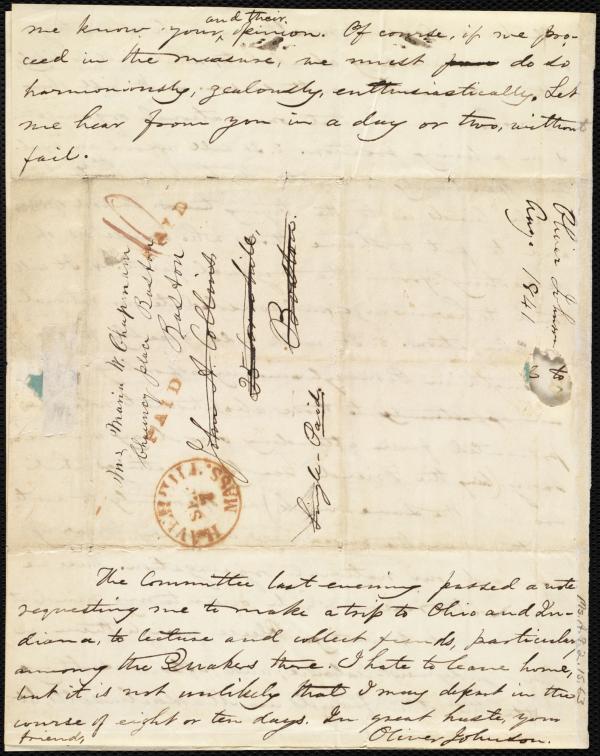 me know your and their opinion. Of course, if we pro-
ceed in the measure, we must do so
harmoniously, zealously, enthusiastically. Let
me hear from you in a day or two, without
fail.
10
PAID
PAID
Mrs Maria W. Chapman
Chauncy place Boston
Boston
John A. Collins,
25 Cornhill,
Boston.
Single - Paid.
HAVERHILL MASS.
Oliver Johnson
Aug. 1841
The Committee last evening passed a vote
requesting me to make a trip to Ohio and In-
diana, to lecture and collect funds, particularly
among the Quakers there. I hate to leave home,
but it is not unlikely that I may depart in the
course of eight or ten days. In great haste, your
friend, Oliver Johnson.